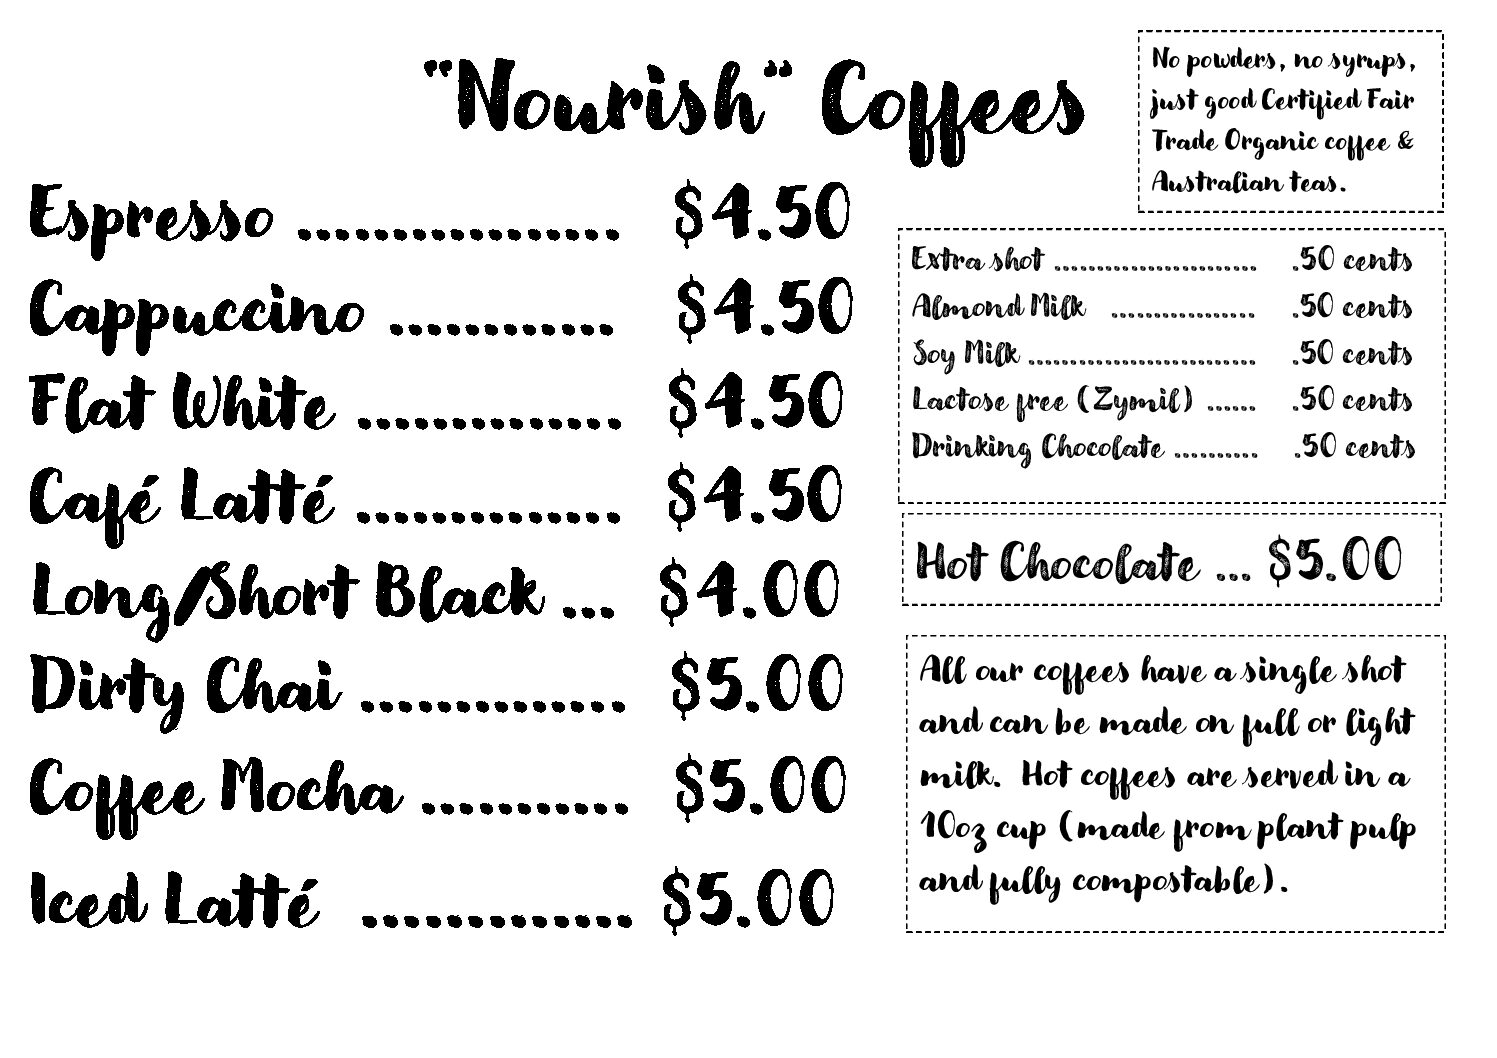 "Nourish" Coffees
No powders, no syrups,
just good Certified Fair
Trade Organic coffee &
Australian teas.
Espresso ................. $4.50
Cappuccino ............ $4.50
Flat White .............. $4.50
Café Latté .............. $4.50
Long/Short Black ... $4.00
Dirty Chai .............. $5.00
Coffee Mocha ........... $5.00
Iced Latté .............. $5.00
Extra shot ........................ .50 cents
Almond Milk ................. .50 cents
Soy Milk ........................... .50 cents
Lactose free (Zymil) ...... .50 cents
Drinking Chocolate .......... .50 cents
Hot Chocolate ... $5.00
All our coffees have a single shot
and can be made on full or light
milk. Hot coffees are served in a
10oz cup (made from plant pulp
and fully compostable).